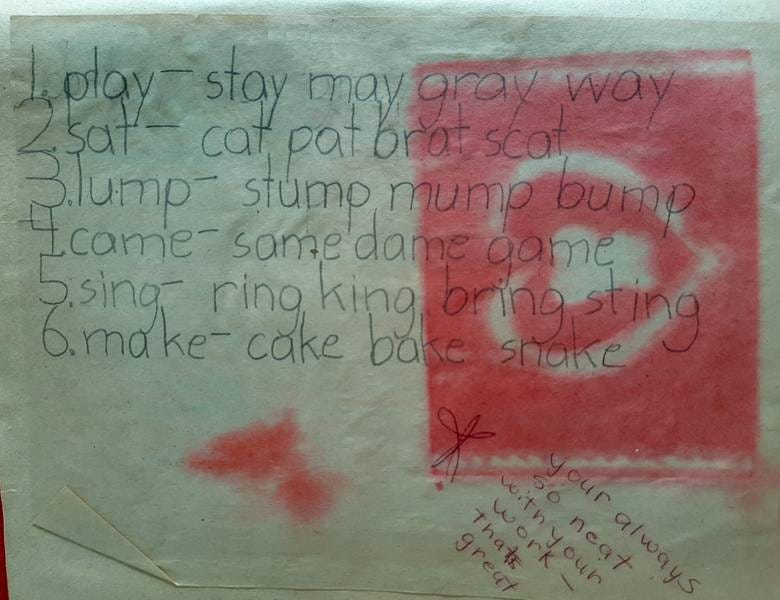 1. play- stay may gray way
2. sat- cat pat brat scat
3. lump- stump mump bump
4. came- same dame game
5. sing- ring king bring sting
6. make- cake bake snake
your always
so neat
with your
work-
thats
great